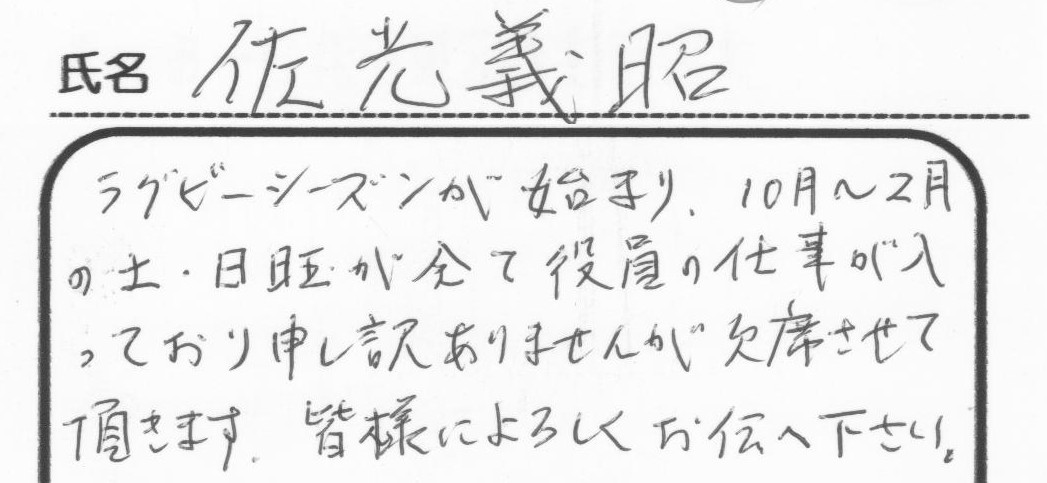 氏名 佐光義昭
ラグビーシーズンが始まり、10月〜2月
の土・日旺が全て役員の仕事が入
っており申し訳ありませんが欠席させて
頂きます。皆様によろしくお伝へ下さい。